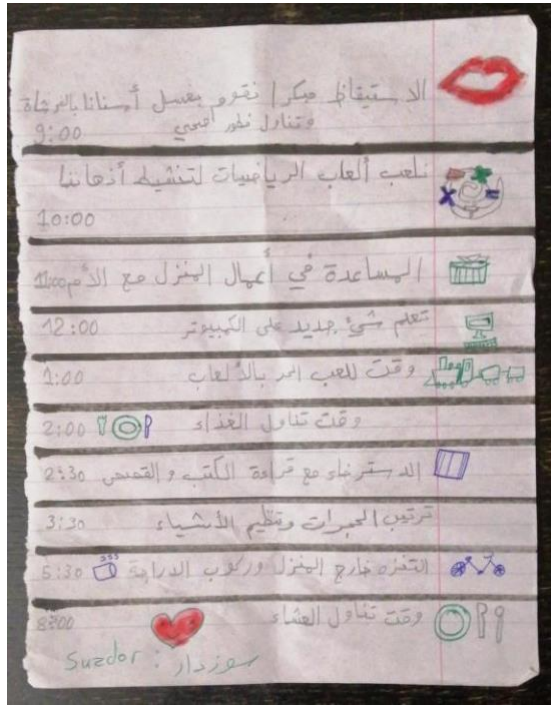 الاستيقاظ مبكرا نقوم بغسل أسناننا بالفرشاة
وتناول فطور صحي
9:00
نلعب ألعاب الرياضيات لتنشيط أذهاننا
10:00
المساعدة في أعمال المنزل مع الأم 11:00
تعلم شيئ جديد على الكمبيوتر 12:00
وقت للعب الحر بالألعاب 1:00
وقت تناول الغذاء 2:00
الاسترخاء مع قراءة الكتب و القصص 2:30
ترتيب الحجرات وتنظيم الأشياء 3:30
التنزه خارج المنزل وركوب الدراجة 5:30
وقت تناول العشاء 8:00
سوزدار : Suzdor